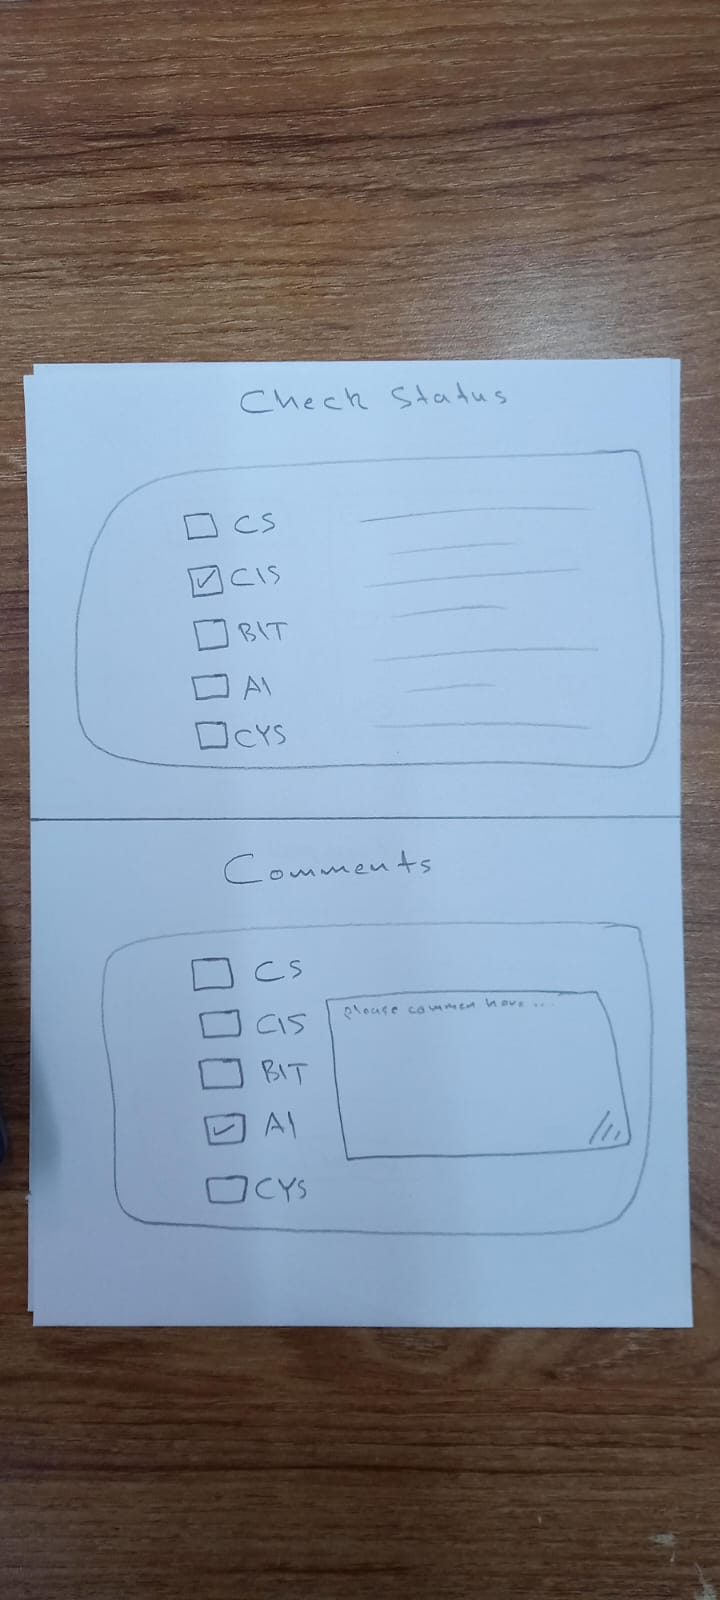 Check Status
CS
CIS
BIT
AI
CYS
Comments
CS
CIS
BIT
AI
CYS
please commen here...